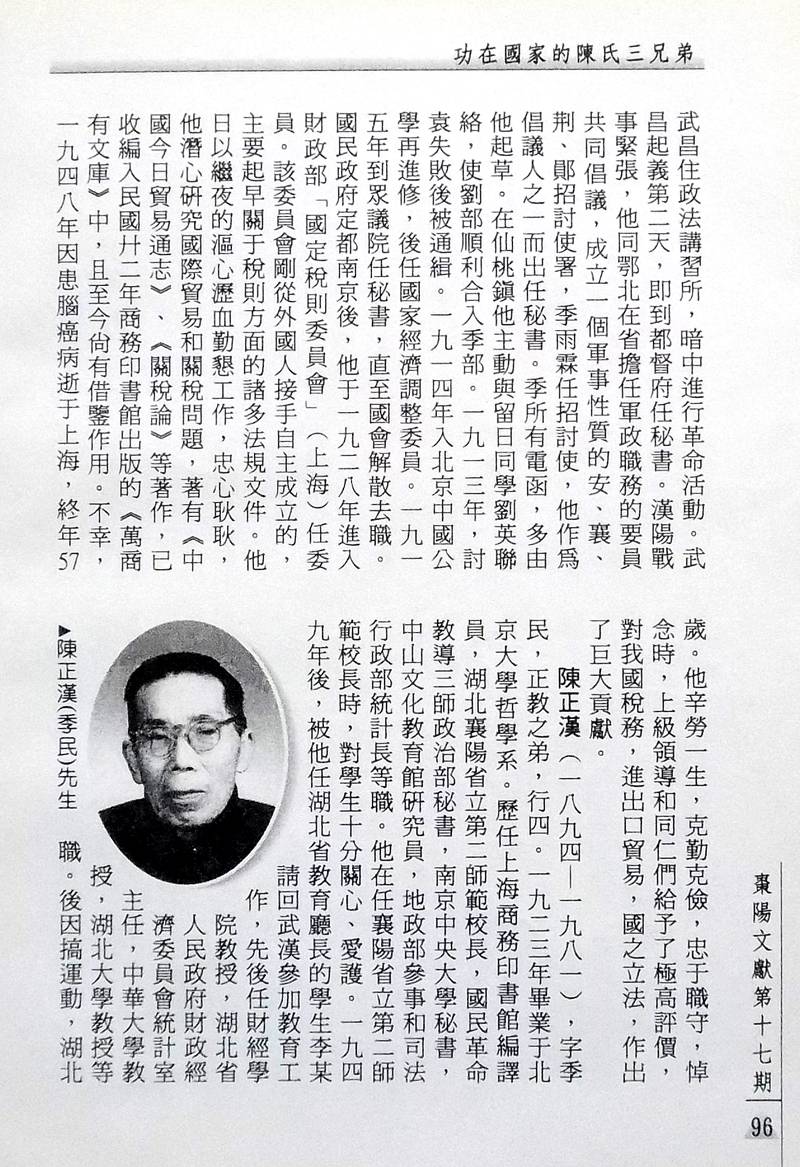 功在國家的陳氏三兄弟
武昌住政法講習所，暗中進行革命活動。武
昌起義第二天，即到都督府任秘書。漢陽戰
事緊張，他同鄂北在省擔任軍政職務的要員
共同倡議，成立一個軍事性質的安、襄、
荆、鄖招討使署，季雨霖任招討使，他作爲
倡議人之一而出任秘書。季所有電函，多由
他起草。在仙桃鎮他主動與留日同學劉英聯
絡，使劉部順利合入季部。一九一三年，討
袁失敗後被通緝。一九一四年入北京中國公
學再進修，後任國家經濟調整委員。一九一
五年到眾議院任秘書，直至國會解散去職。
國民政府定都南京後，他于一九二八年進入
財政部「國定稅則委員會」（上海）任委
員。該委員會剛從外國人接手自主成立的，
主要起早關于稅則方面的諸多法規文件。他
日以繼夜的漚心瀝血勤懇工作，忠心耿耿，
他潛心研究國際貿易和關稅問題，著有《中
國今日貿易通志》、《關稅論》等著作，已
收編入民國廿二年商務印書館出版的《萬商
有文庫》中，且至今尙有借鑒作用。不幸，
一九四八年因患腦癌病逝于上海，終年57
歲。他辛勞一生，克勤克儉，忠于職守，悼
念時，上級領導和同仁們給予了極高評價，
對我國稅務，進出口貿易，國之立法，作出
了巨大貢獻。
陳正漢（一八九四—一九八一），字季
民，正教之弟，行四。一九二三年畢業于北
京大學哲學系。歷任上海商務印書館編譯
員，湖北襄陽省立第二師範校長，國民革命
教導三師政治部秘書，南京中央大學秘書，
中山文化教育館研究員，地政部參事和司法
行政部統計長等職。他在任襄陽省立第二師
範校長時，對學生十分關心、愛護。一九四
九年後，被他任湖北省教育廳長的學生李某
請回武漢參加教育工
作，先後任財經學
院教授，湖北省
人民政府財政經
濟委員會統計室
主任，中華大學教
授，湖北大學教授等
職。後因搞運動，湖北
▶陳正漢(季民)先生
棗陽文獻第十七期
96